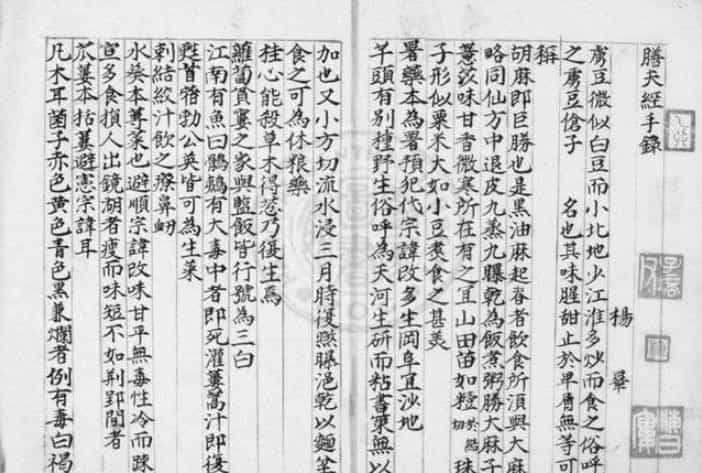 膳夫經手錄
楊 曅
虜豆微似白豆而小北地少江淮多炒而食之俗呼
之虜豆傖子 名也其味腥甜止於早膺無等可
稱
胡麻即巨勝也是黑油麻起眷者飲食所湏與大麻
略同仙方中退皮九蒸九曝乾為飯煮粥勝大麻子
薏苡味甘香微寒所在有之宜山田苗如 珠
子形似粟米大如小豆炙食之甚美
署藥本為署預犯代宗諱改多生岡阜宜沙地
芋頭有别種野生俗呼為天河生研而粘書策無以
加也又小方切流水浸三月時復 曝浥乾以麵坌
食之可為休粮藥
桂心能殺草木得葱乃復生焉
蘿蔔貧寠之家與鹽飯皆行號為三白
江南有魚曰 有大毒中者即死灌蔞蒿汁即復
甦苜蓿勃公英皆可為生菜
刺結絞汁飲之療鼻衂
水葵本蓴菜也避順宗諱改味甘平無毒性冷而踈
宣多食損人出鏡湖者瘦而味短不如荆郢間者
苽蔞本括蔞避憲宗諱耳
凡木耳菌子赤色黄色青色黑兼爛者例有毒白褐